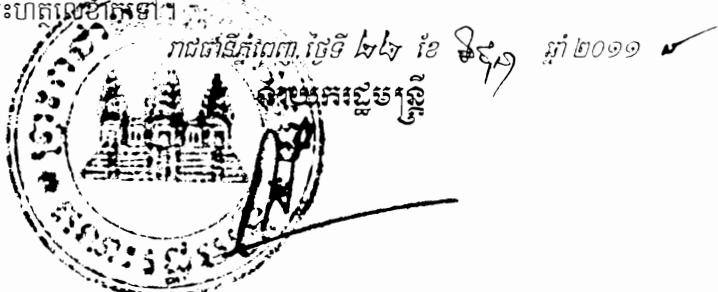 ះហត្ថលេខាតទៅ។
រាជធានីភ្នំពេញ, ថ្ងៃទី ២២ ខែ មិថុនា ឆ្នាំ ២០១១
នាយករដ្ឋមន្ត្រី